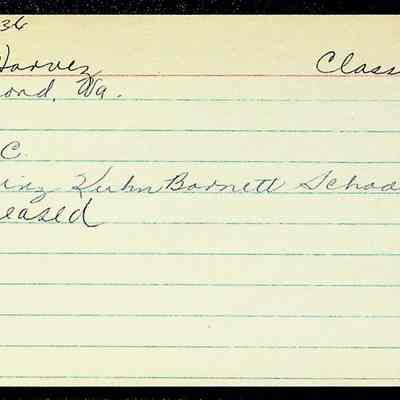 36
Harvey Class
mond, Va.
C.
Kuhn Barnett School
eased